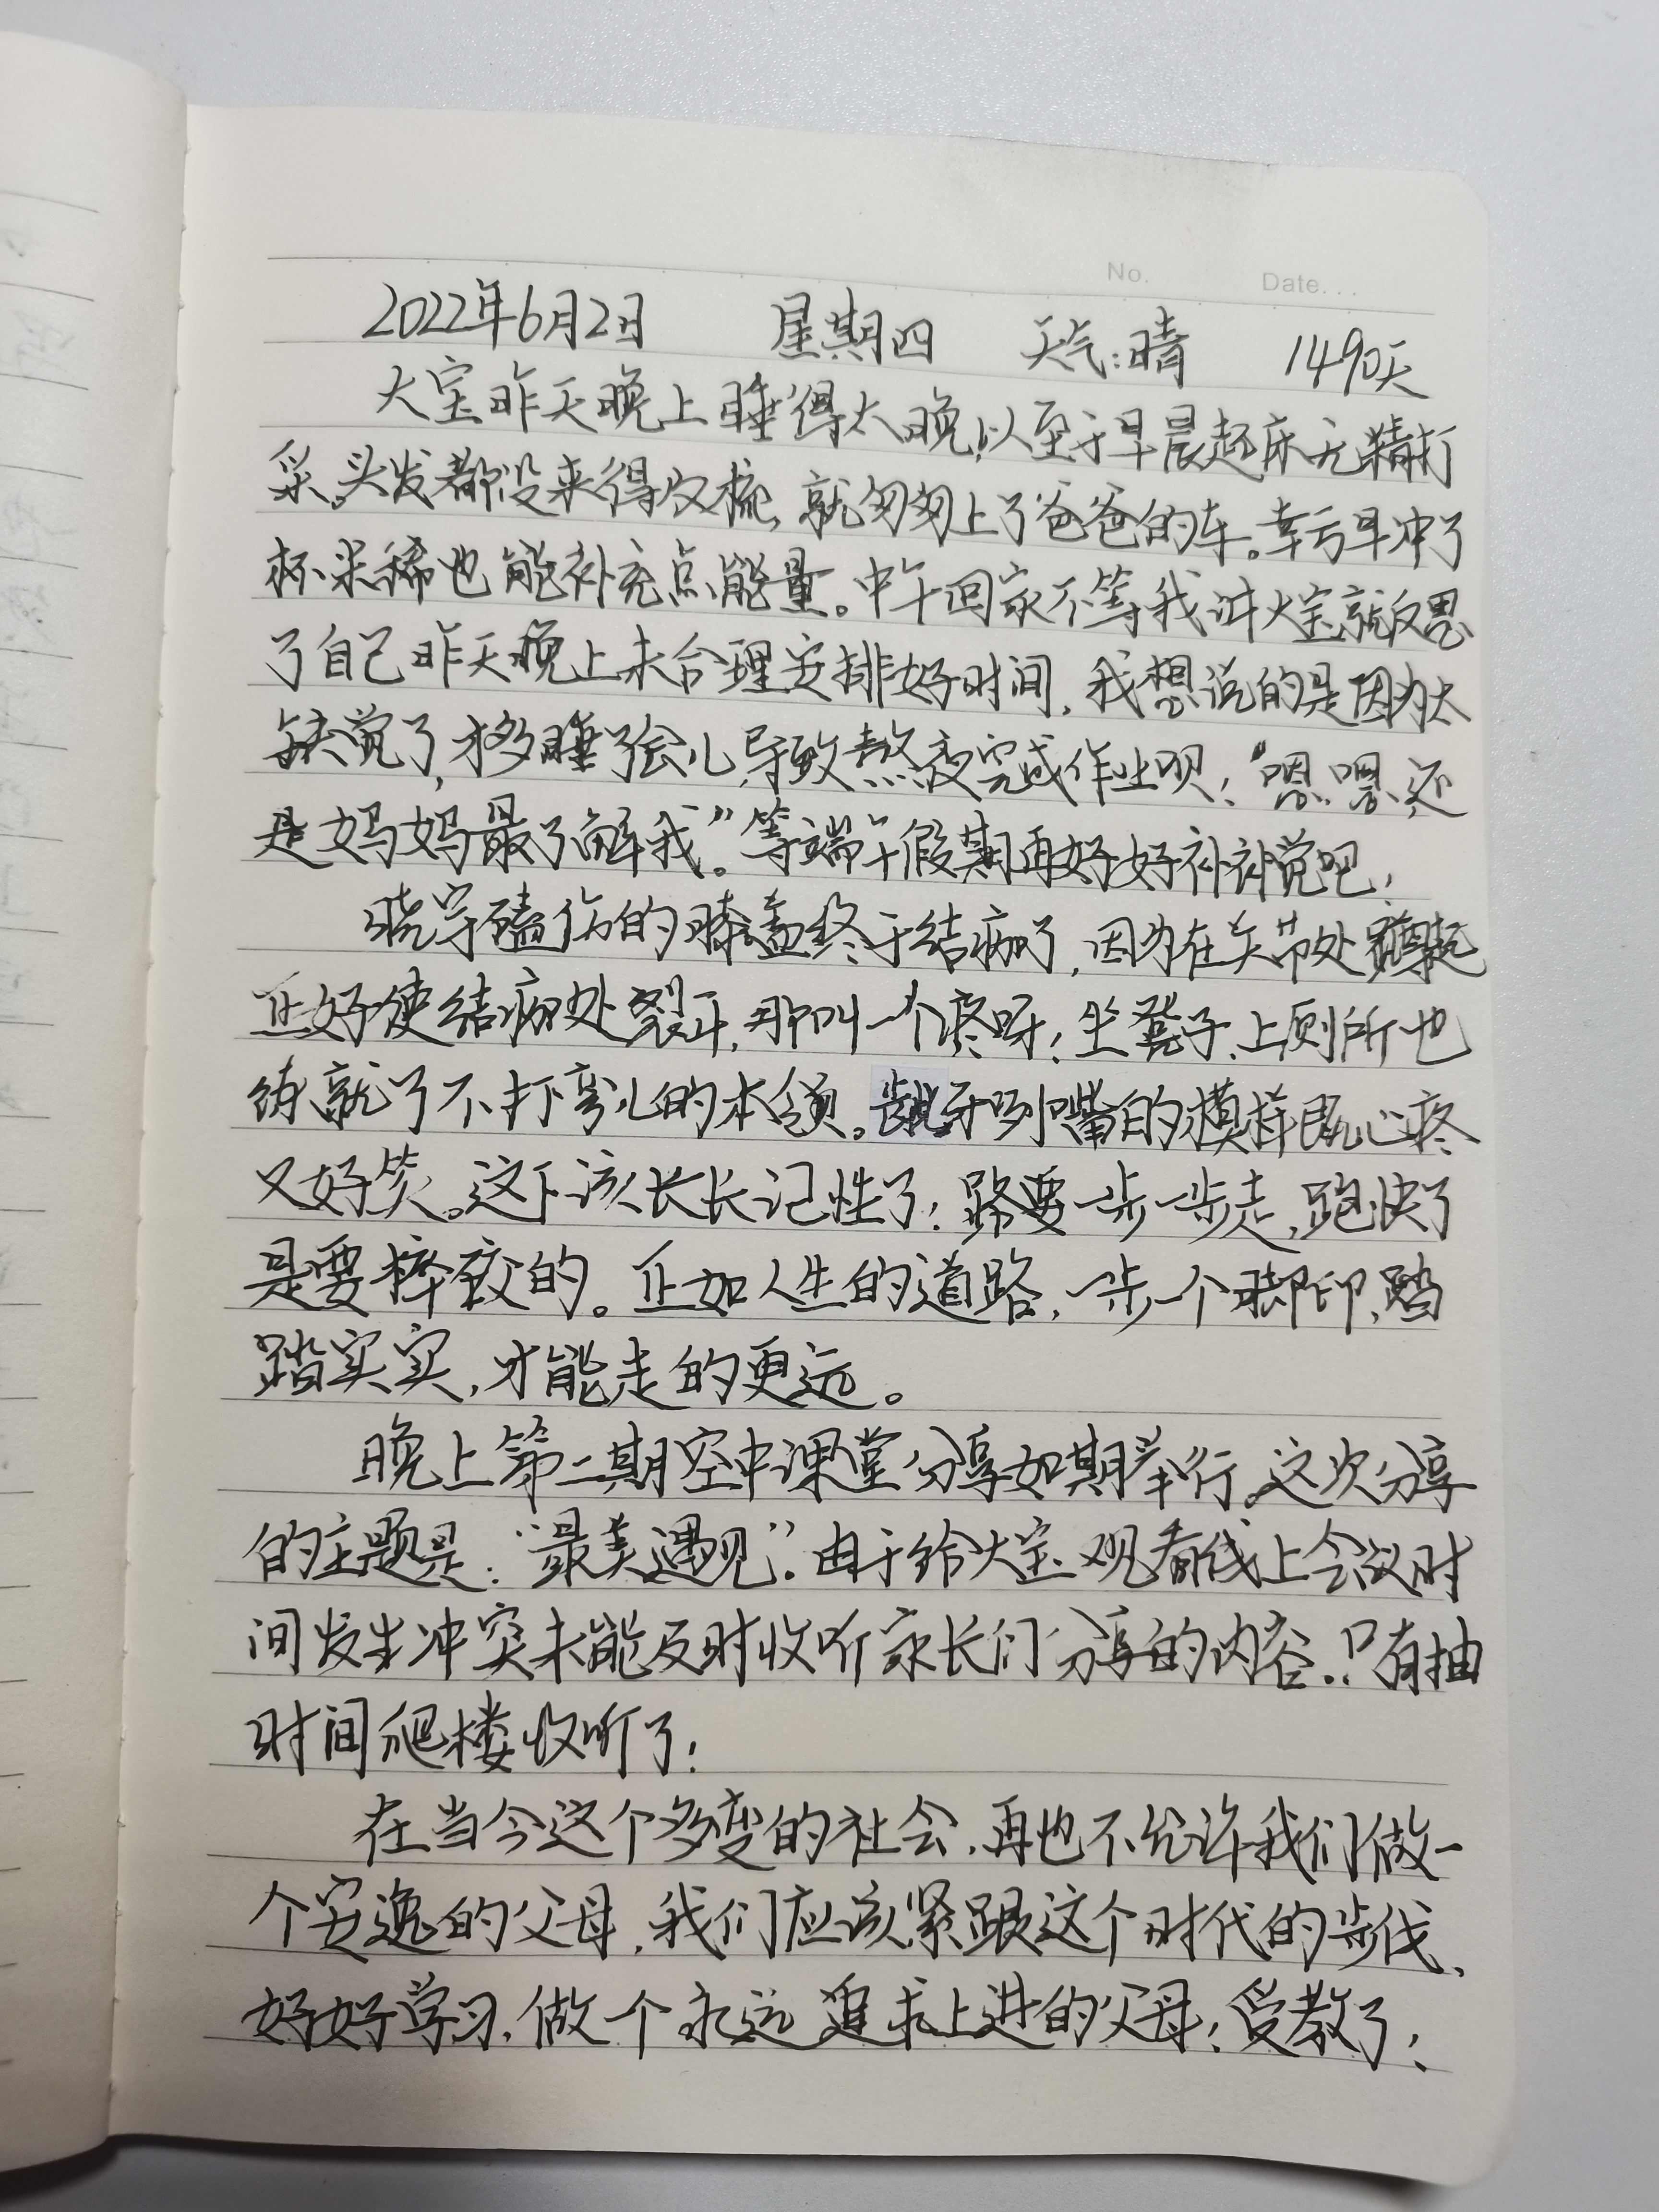 No.    Date...
2022年6月2日 星期四 天气:晴 1490天
大宝昨天晚上睡得太晚,以至于早晨起床无精打
采。头发都没来得及梳,就匆匆上了爸爸的车。幸亏早冲了
杯米稀也能补充点能量。中午回家不等我讲大宝就反思
了自己昨天晚上未合理安排好时间,我想说的是因为太
缺觉了,才多睡了会儿,导致熬夜完成作业呗!“嗯嗯,还
是妈妈最了解我”。等端午假期再好好补补觉吧!
晓宇磕伤的膝盖终于结痂了,因为在关节处
正好使结痂处裂开,那叫一个疼呀!坐凳子、上厕所也
练就了不打弯儿的本领。龇牙咧嘴的模样既心疼
又好笑。这下该长长记性了!路要一步一步走,跑快了
是要摔跤的。正如人生的道路,一步一个脚印,踏
踏实实,才能走的更远。
晚上第二期空中课堂分享如期举行。这次分享
的主题是:“最美遇见”。由于给大宝观看线上会议时
间发生冲突未能及时收听家长们分享的内容。只有抽
时间爬楼收听了!
在当今这个多变的社会,再也不允许我们做一
个安逸的父母,我们应该紧跟这个时代的步伐、
好好学习,做一个永远追求上进的父母!受教了!